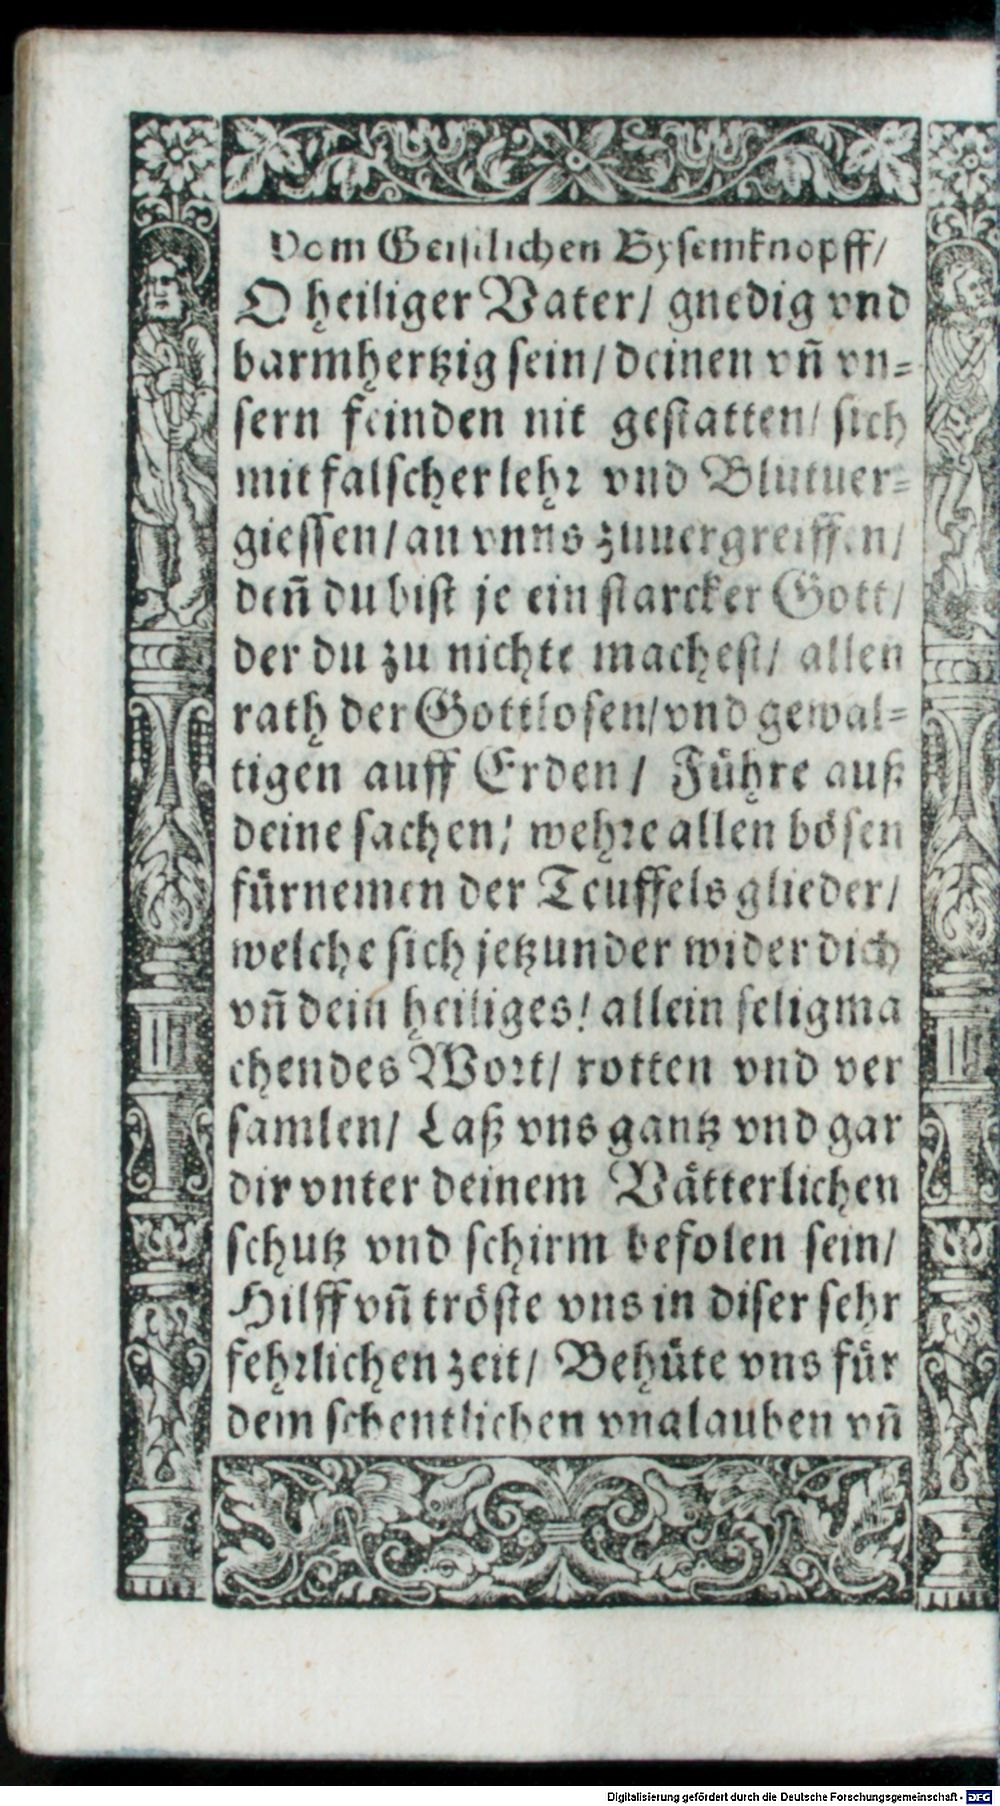 Vom Geistlichen Bysemknopff/
O heiliger Vater/ gnedig vnd
barmhertzig sein/ deinen vn̄ vn=
sern feinden nit gestatten/ sich
mit falscher lehr vnd Blutuer=
giessen/ an vnns zuuergreiffen/
den̄ du bist je ein starcker Gott/
der du zu nichte machest/ allen
rath der Gottlosen/ vnd gewal=
tigen auff Erden/ Führe auß
deine sachen/ wehre allen bösen
fürnemen der Teuffels glieder/
welche sich jetzunder wider dich
vn̄ dein heiliges/ allein seligma
chendes Wort/ rotten vnd ver
samlen/ Laß vns gantz vnd gar
dir vnter deinem Vätterlichen
schutz vnd schirm befolen sein/
Hilff vn̄ tröste vns in diser sehr
fehrlichen zeit/ Behüte vns für
dem schentlichen vnglauben vn̄
Digitalisierung gefördert durch die Deutsche Forschungsgemeinschaft - DFG